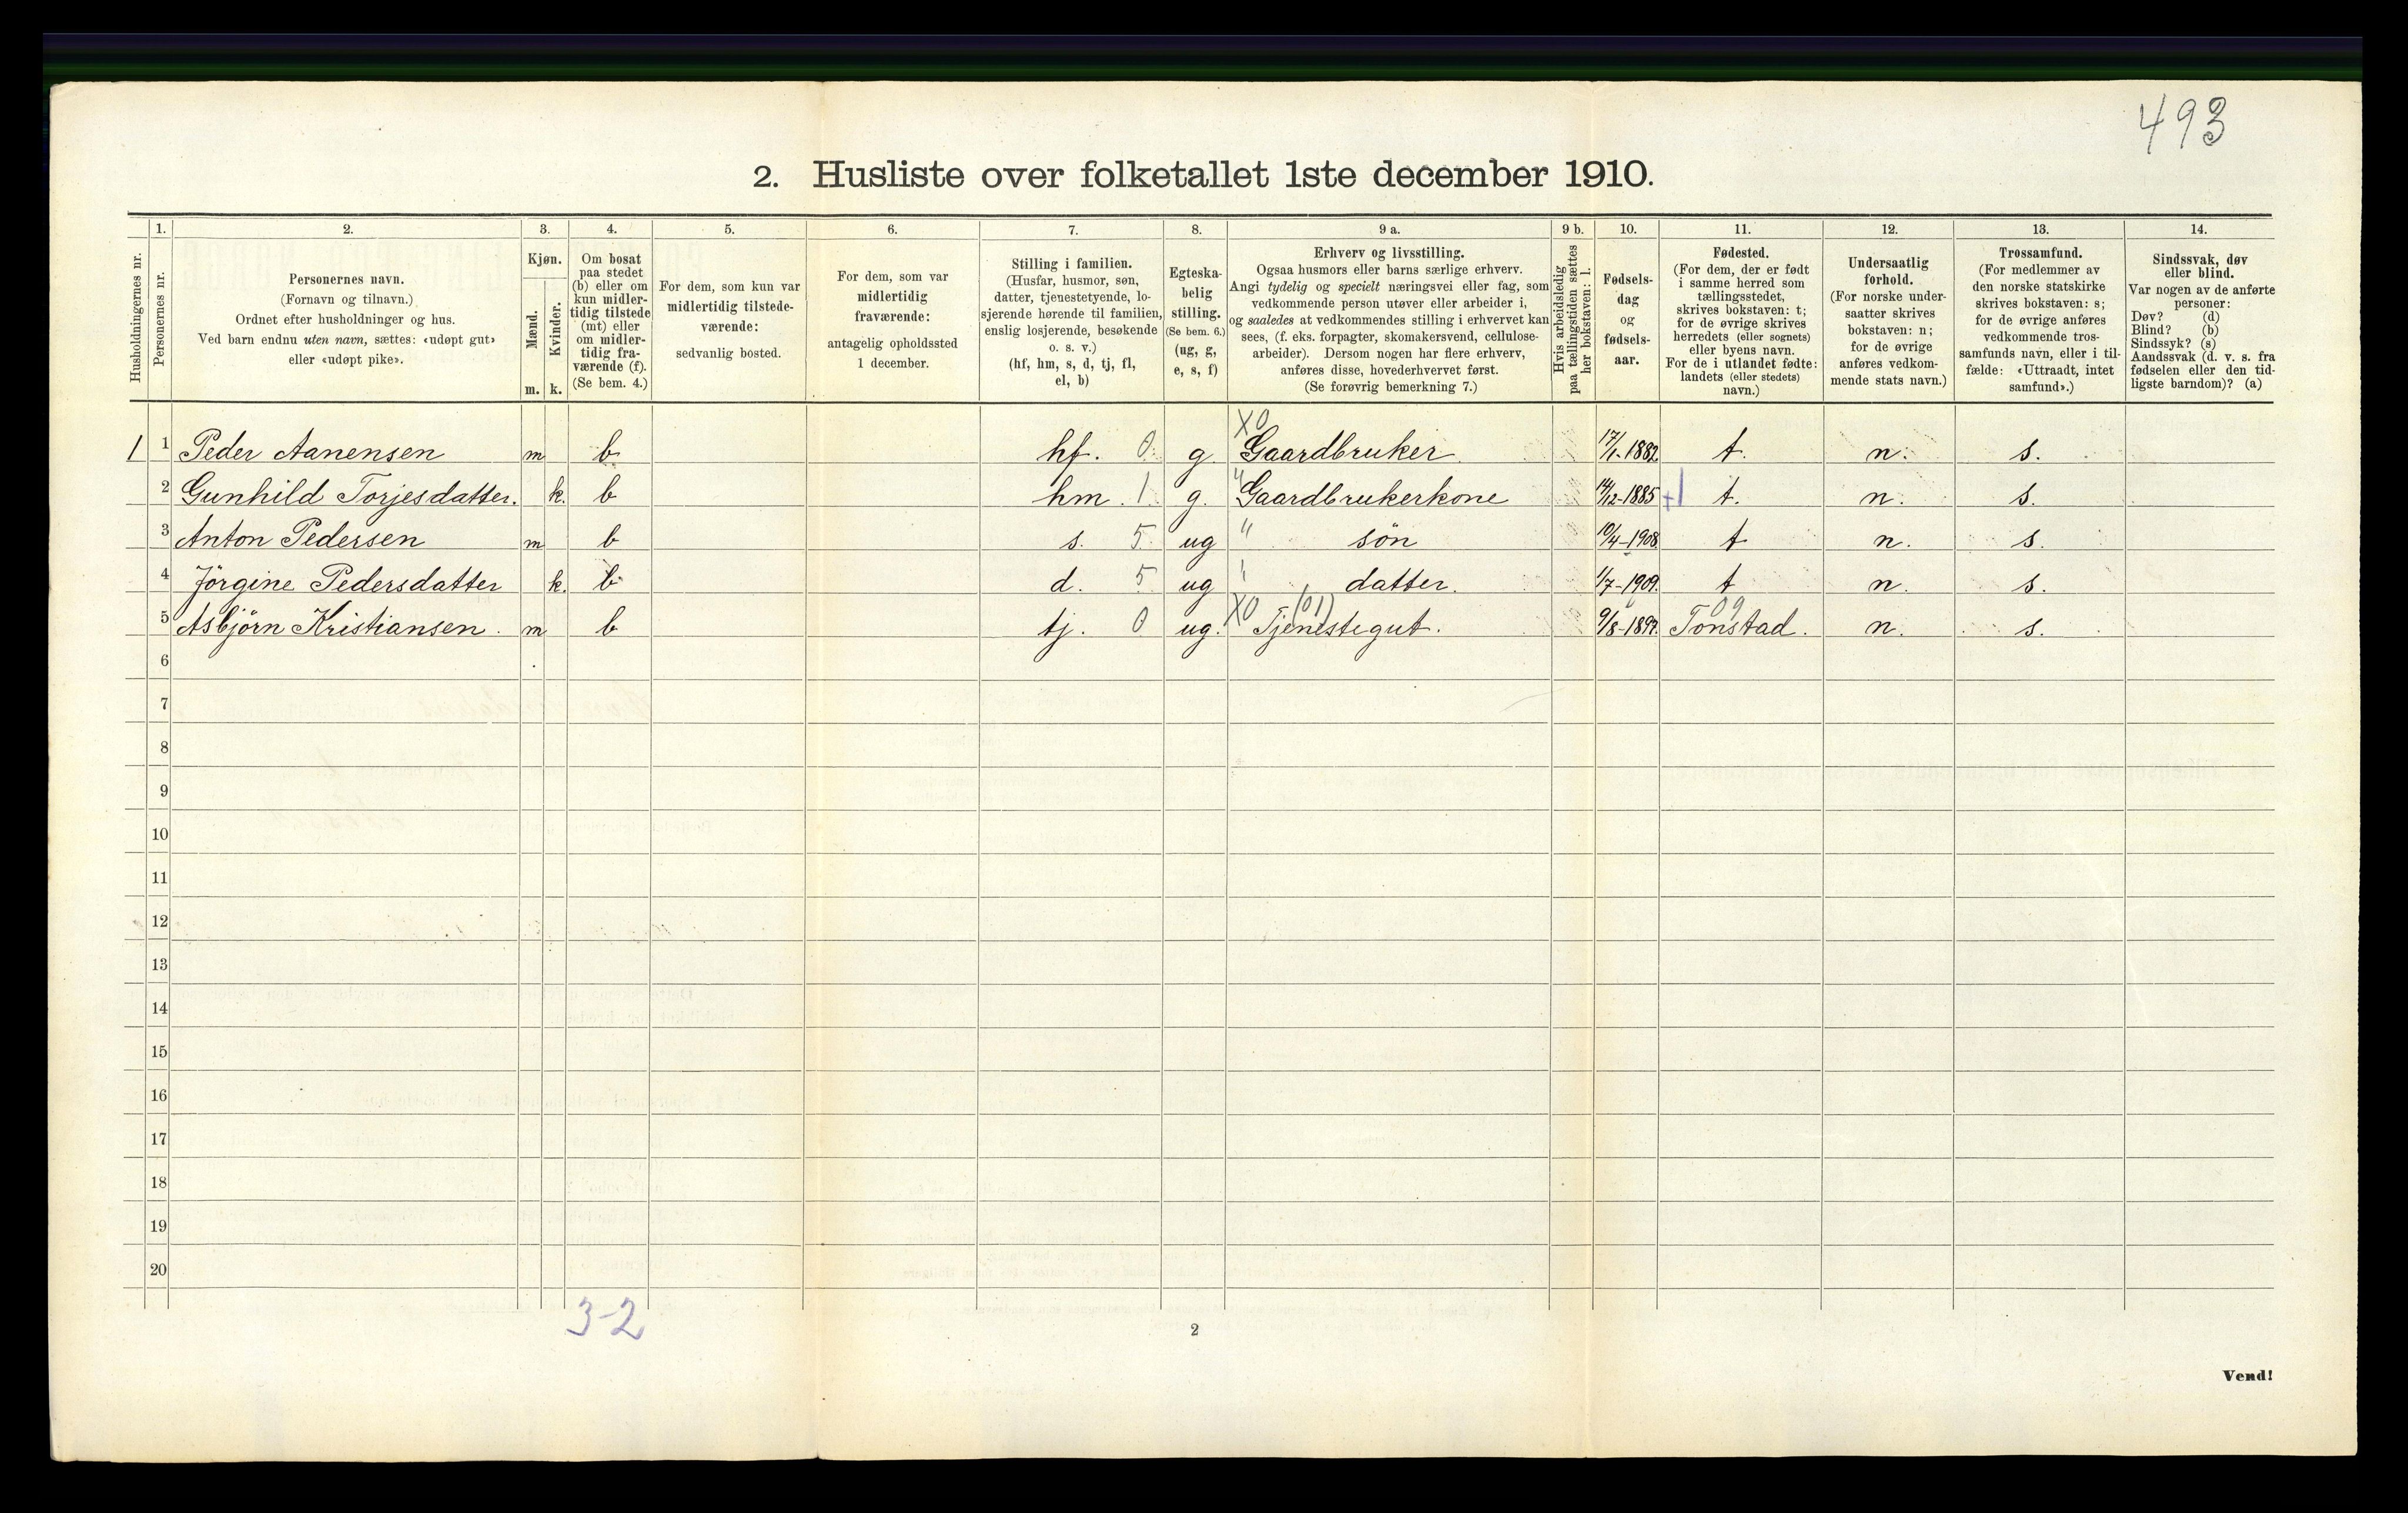 493
2. Husliste over folketallet 1ste december 1910.
Husholdningernes nr.
1.
Personernes nr.
2.
Personernes navn.
(Fornavn og tilnavn.)
Ordnet efter husholdninger og hus.
Ved barn endnu uten navn, sættes: «udøpt gut»
eller «udøpt pike».
3.
Kjøn.
Mænd.
Kvinder.
m. k.
4.
Om bosat
paa stedet
(b) eller om
kun midler-
tidig tilstede
(mt) eller
om midler-
tidig fra-
værende (f).
(Se bem. 4.)
5.
For dem, som kun var
midlertidig tilstede-
værende:
sedvanlig bosted.
6.
For dem, som var
midlertidig
fraværende:
antagelig opholdssted
1 december.
7.
Stilling i familien.
(Husfar, husmor, søn,
datter, tjenestetyende, lo-
sjerende hørende til familien,
enslig losjerende, besøkende
o. s. v.)
(hf, hm, s, d, tj, fl,
el, b)
8.
Egteska-
belig
stilling.
(Se bem. 6.)
(ug, g,
e, s, f)
9 a.
Erhverv og livsstilling.
Ogsaa husmors eller barns særlige erhverv.
Angi tydelig og specielt næringsvei eller fag, som
vedkommende person utøver eller arbeider i,
og saaledes at vedkommendes stilling i erhvervet kan
sees, (f. eks. forpagter, skomakersvend, cellulose-
arbeider). Dersom nogen har flere erhverv,
anføres disse, hovederhvervet først.
(Se forøvrig bemerkning 7.)
9 b.
Hvis arbeidsledig
paa tællingstiden sættes
her bokstaven: l.
10.
Fødsels-
dag
og
fødsels-
aar.
11.
Fødested.
(For dem, der er født
i samme herred som
tællingsstedet,
skrives bokstaven: t;
for de øvrige skrives
herredets (eller sognets)
eller byens navn.
For de i utlandet fødte:
landets (eller stedets)
navn.)
12.
Undersaatlig
forhold.
(For norske under-
saatter skrives
bokstaven: n;
for de øvrige
anføres vedkom-
mende stats navn.)
13.
Trossamfund.
(For medlemmer av
den norske statskirke
skrives bokstaven: s;
for de øvrige anføres
vedkommende tros-
samfunds navn, eller i til-
fælde: «Uttraadt, intet
samfund».)
14.
Sindssvak, døv
eller blind.
Var nogen av de anførte
personer:
Døv? (d)
Blind? (b)
Sindssyk? (s)
Aandssvak (d. v. s. fra
fødselen eller den tid-
ligste barndom)? (a)
1 1 Peder Aanensen m b hf. 0 g. X0 Gaardbruker 17/1-1882 t. n. s.
2 Gunhild Torjesdatter. k. b hm. 1 g. " Gaardbrukerkone 14/12-1885 +1 t. n. s.
3 Anton Pedersen m b s. 5 ug " søn 10/4-1908 t n. s.
4 Jörgine Pedersdatter k. b d. 5 ug " datter. 1/7-1909. t n s.
5 Asbjörn Kristiansen. m b tj. 0 ug. X0 (01) Tjenestegut. 9/8-1897. 09 Tonstad. n. s.
6
7
8
9
10
11
12
13
14
15
16
17
18
19
20
3-2
2
Vend!